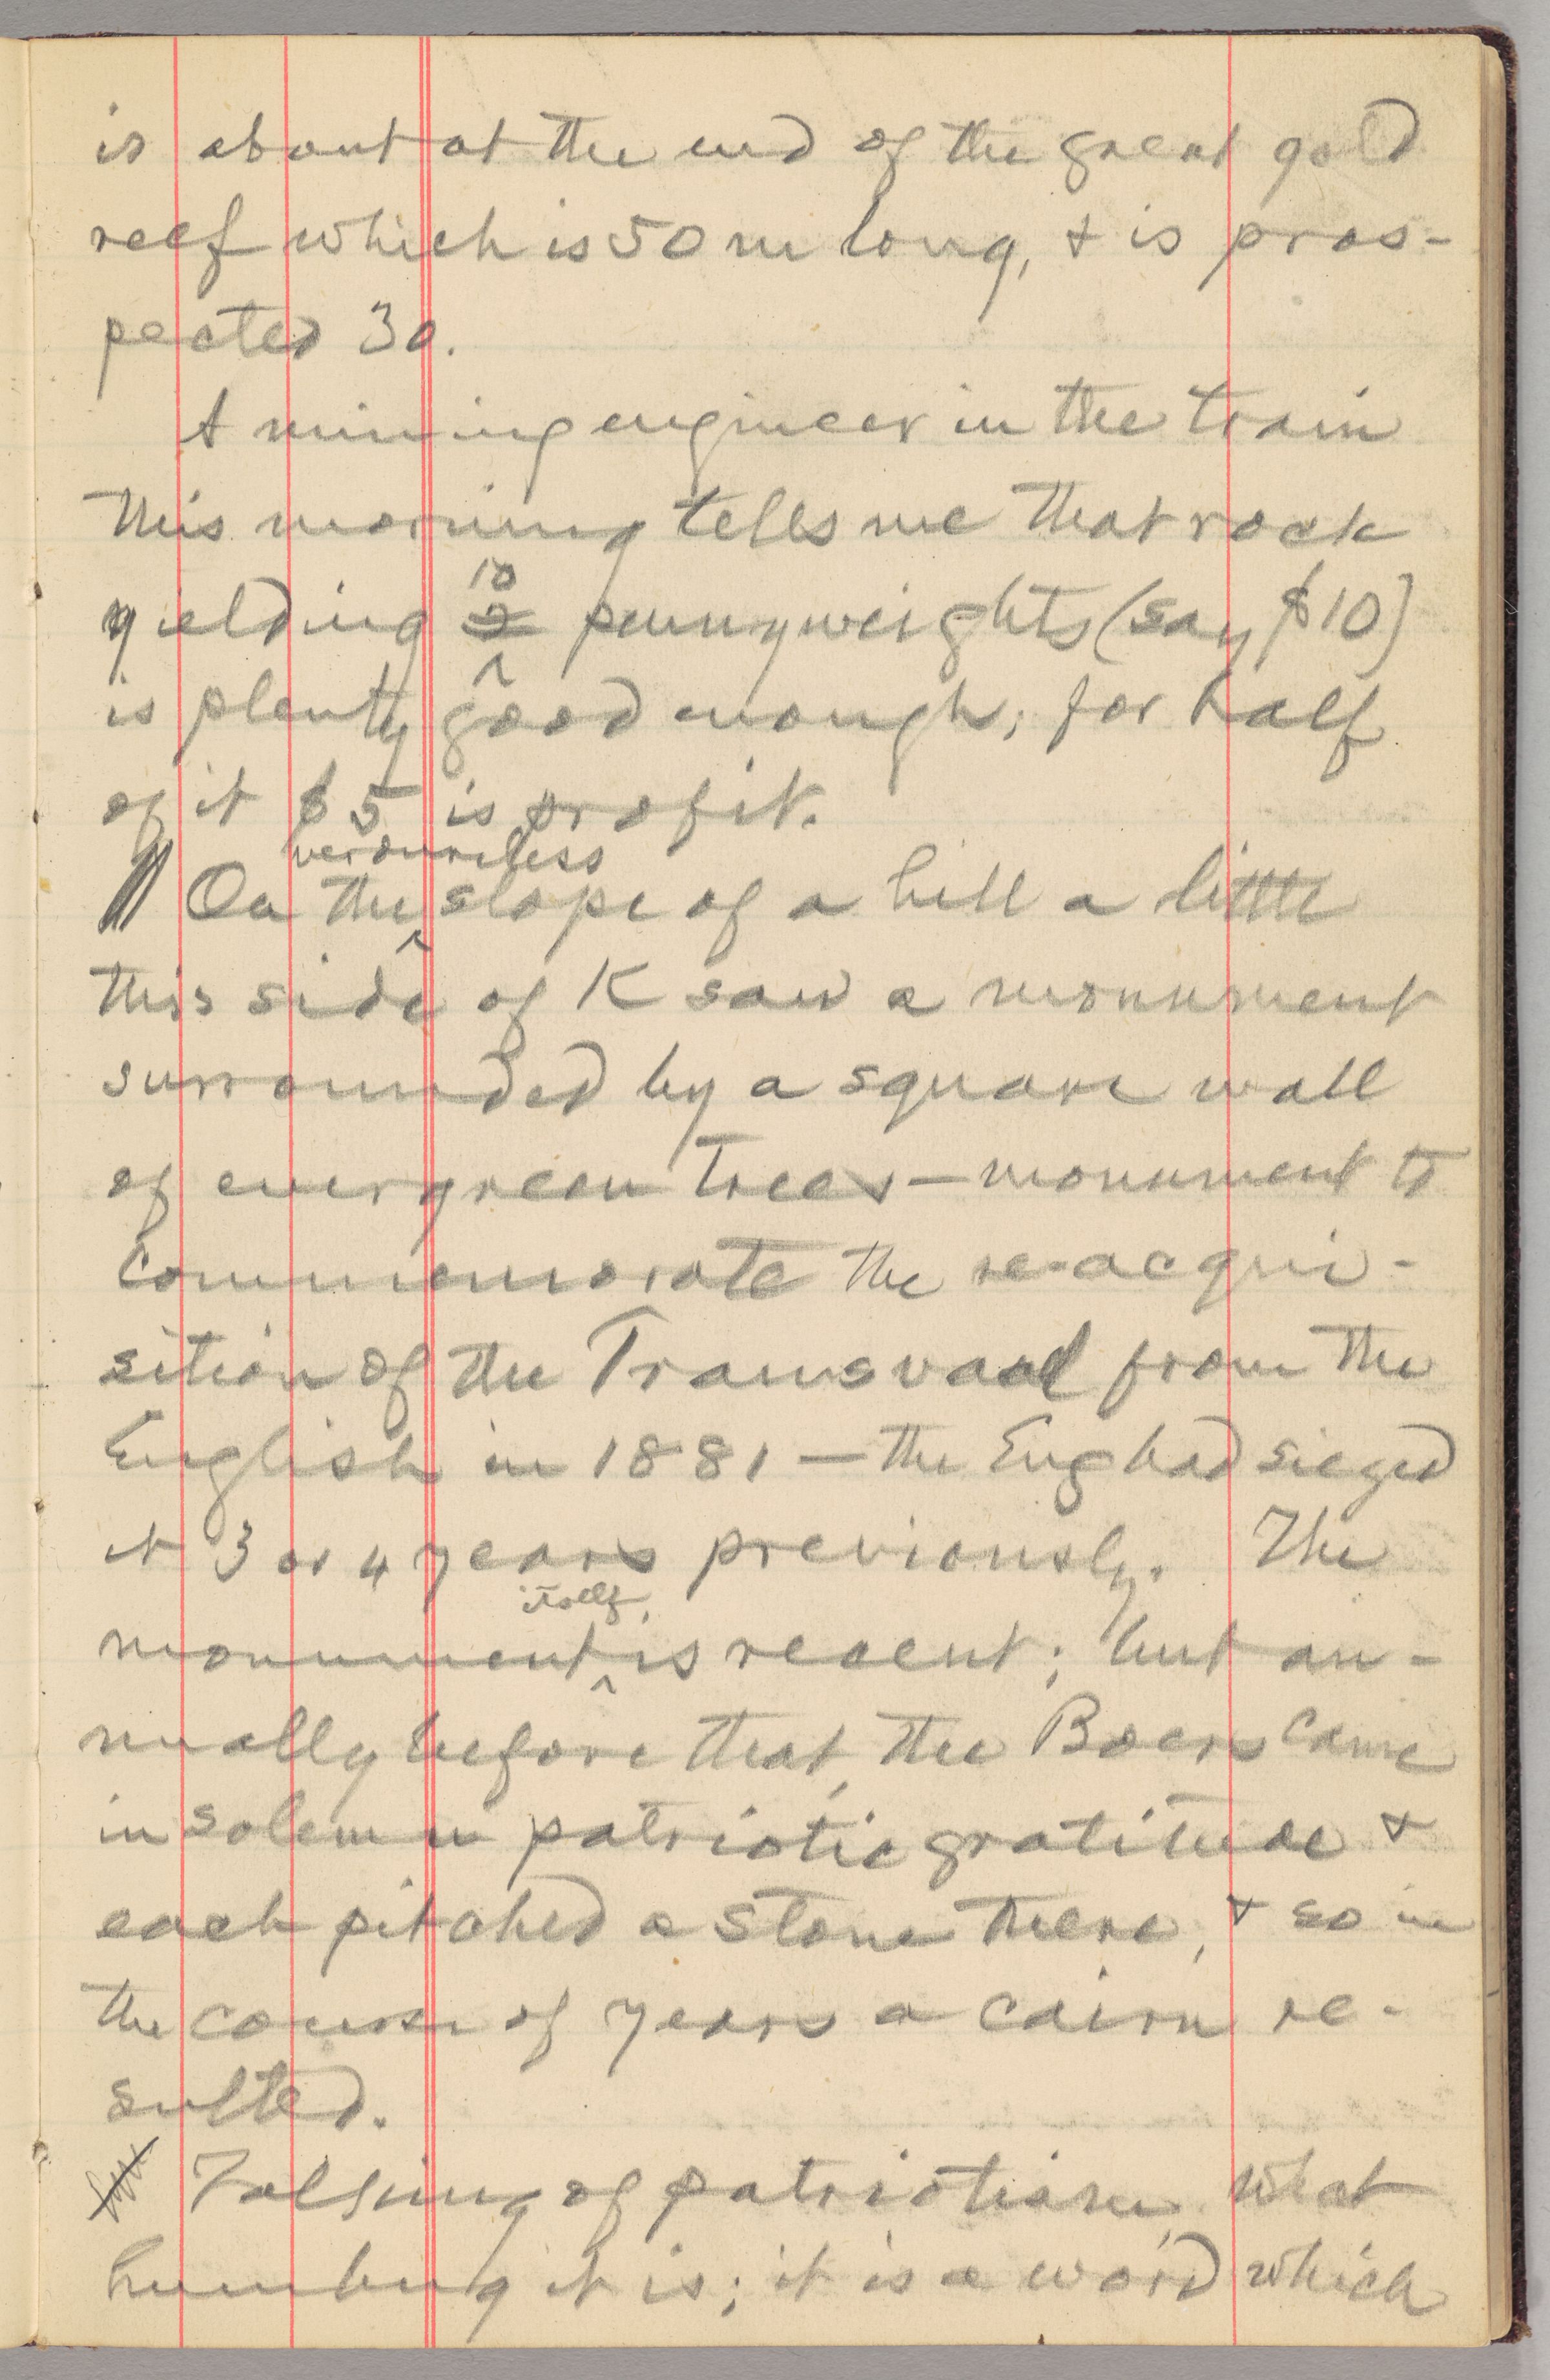 is about at the end of the great gold
reef which is 50 m long, & is pros-
pected 30.
A mining engineer in the train
this morning tells me that rock
10
yielding 2 pennyweights (say $10)
is plenty good enough; for half
of it $5 is profit.
verdureless
On the slope of a hill a little
this side of K saw a monument
surrounded by a square wall
of evergreen trees—monument to
commemorate the re-acqui-
sition of the Transvaal from the
English in 1881 — the Eng had sieged
it 3 or 4 years previously. The
itself,
monument is recent; but an-
nually before that, the Boers came
in solemn patriotic gratitude &
each pitched a stone there, & so in
the course of years a cairn re-
sulted.
Talking of patriotism, what
humbug it is; it is a word which